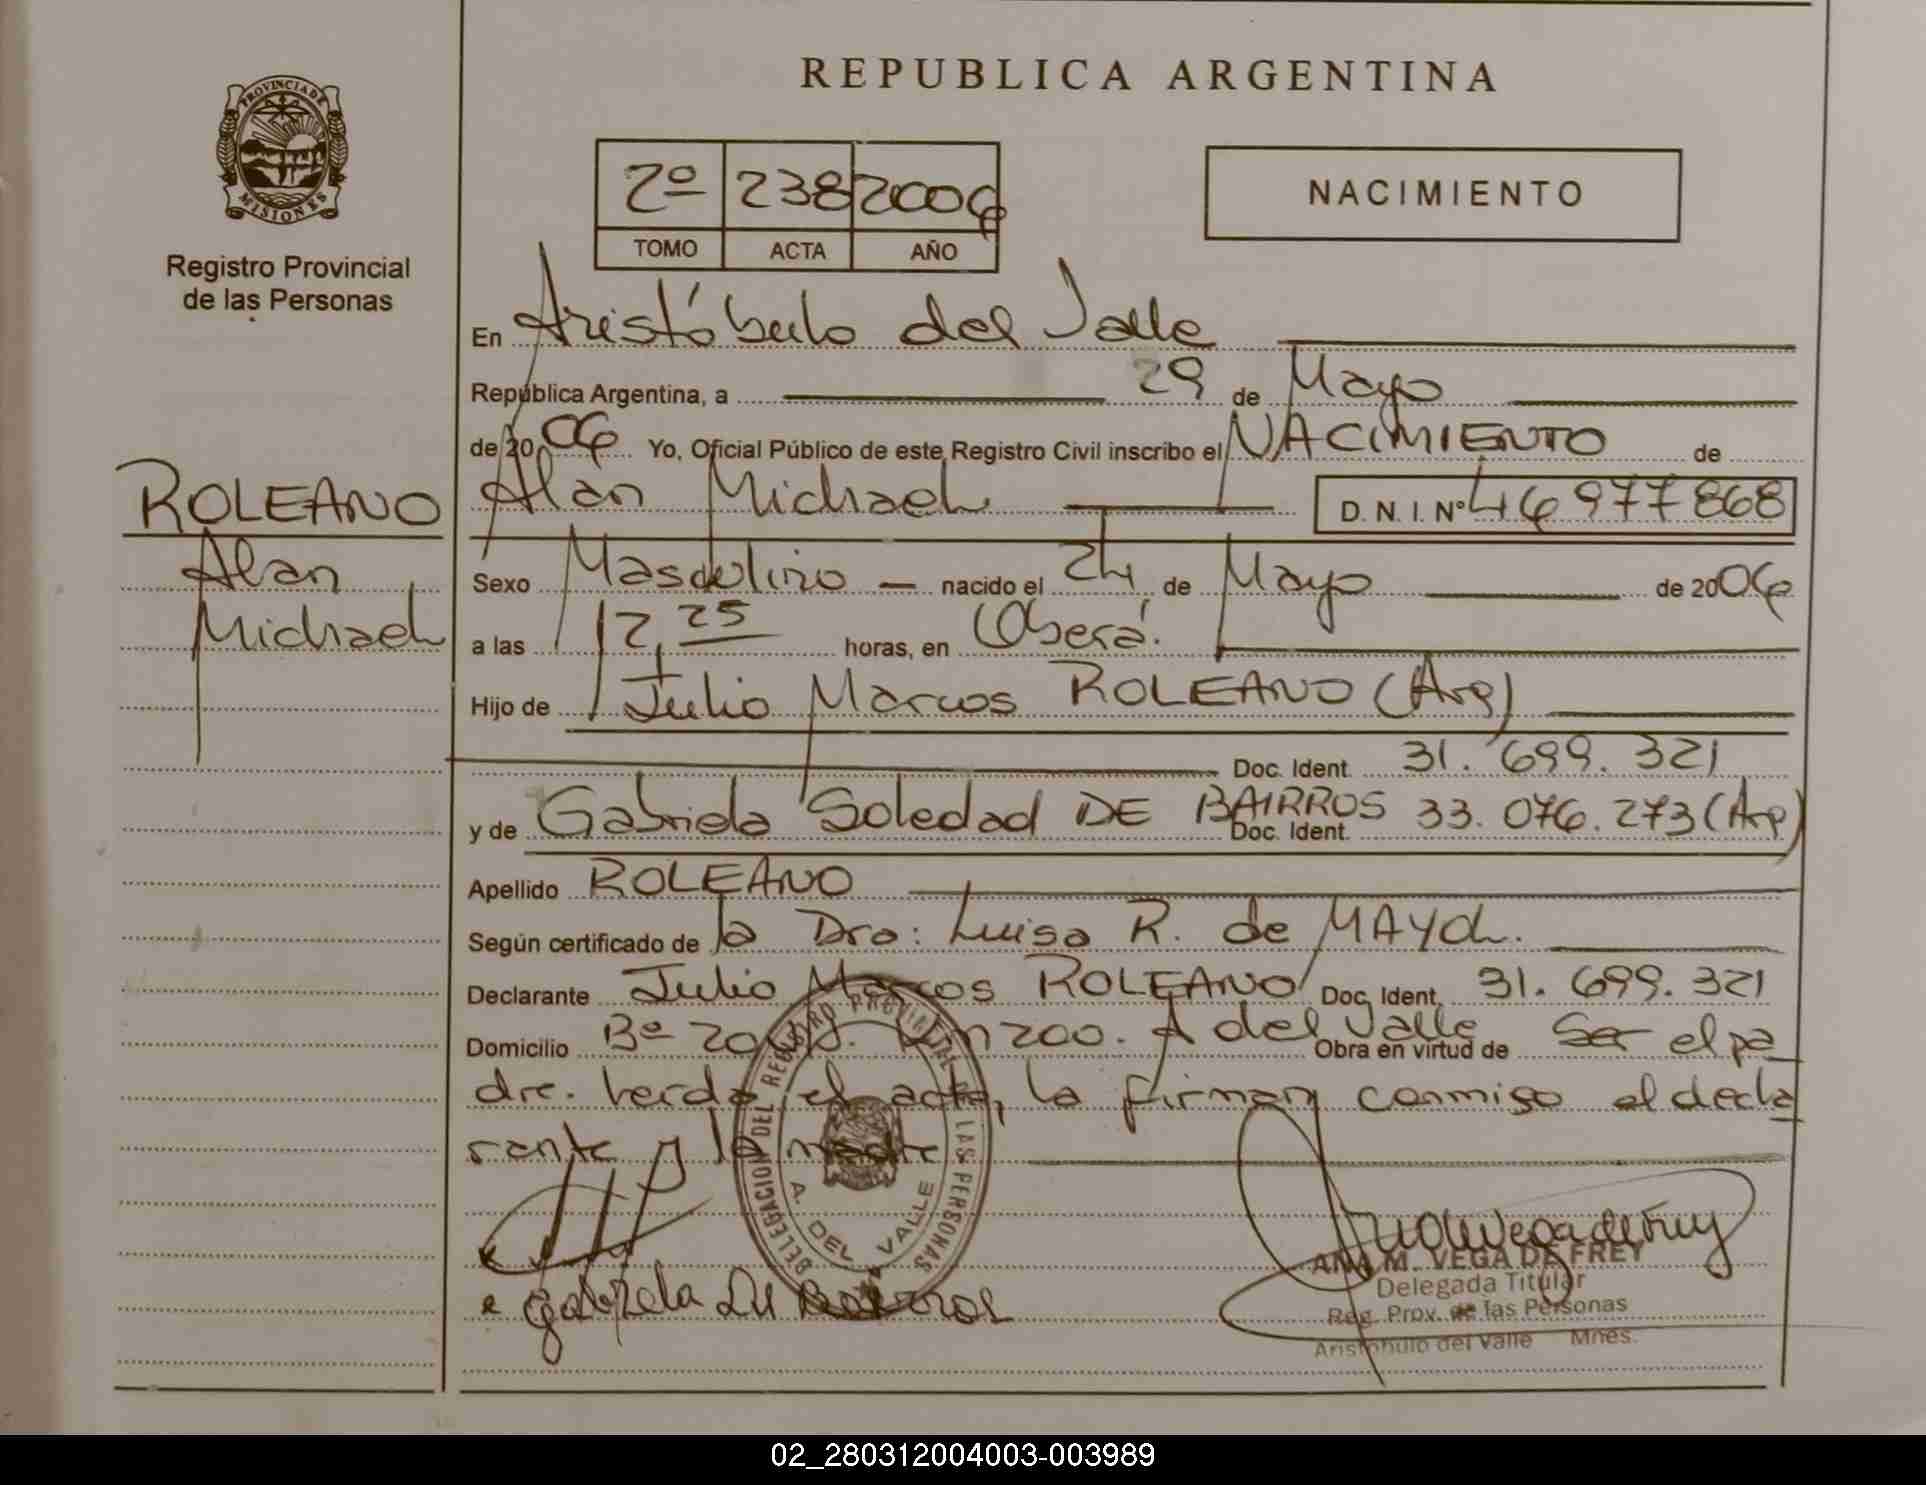 REPUBLICA ARGENTINA
PROVINCIA DE
MISIONES
Registro Provincial
de las Personas
2º 238 2006
TOMO ACTA AÑO
NACIMIENTO
En Aristóbulo del Valle
República Argentina, a 29 de Mayo
de 2006 Yo, Oficial Público de este Registro Civil inscribo el NACIMIENTO de
ROLEANO
Alan
Michael
Alan Michael D.N.I. Nº 46977868
Sexo Masculino — nacido el 24 de Mayo de 2006
a las 12,25 horas, en Oberá.
Hijo de Julio Marcos ROLEANO (Arg)
Doc. Ident. 31.699.321
y de Gabriela Soledad DE BAIRROS Doc. Ident. 33.076.273 (Arg)
Apellido ROLEANO
Según certificado de la Dra: Luisa R. de MAYOL.
Declarante Julio Marcos ROLEANO Doc. Ident. 31.699.321
Domicilio Bº 200. A del Valle Obra en virtud de Ser el pa
dre. leída el acta, la firman conmigo el decla
rante y la madre
DELEGACION DEL REGISTRO PROVINCIAL DE LAS PERSONAS
A. DEL VALLE
Gabriela De Bairros
ANA M. VEGA DE FREY
Delegada Titular
Reg. Prov. de las Personas
Aristóbulo del Valle Mnes.
02_280312004003-003989